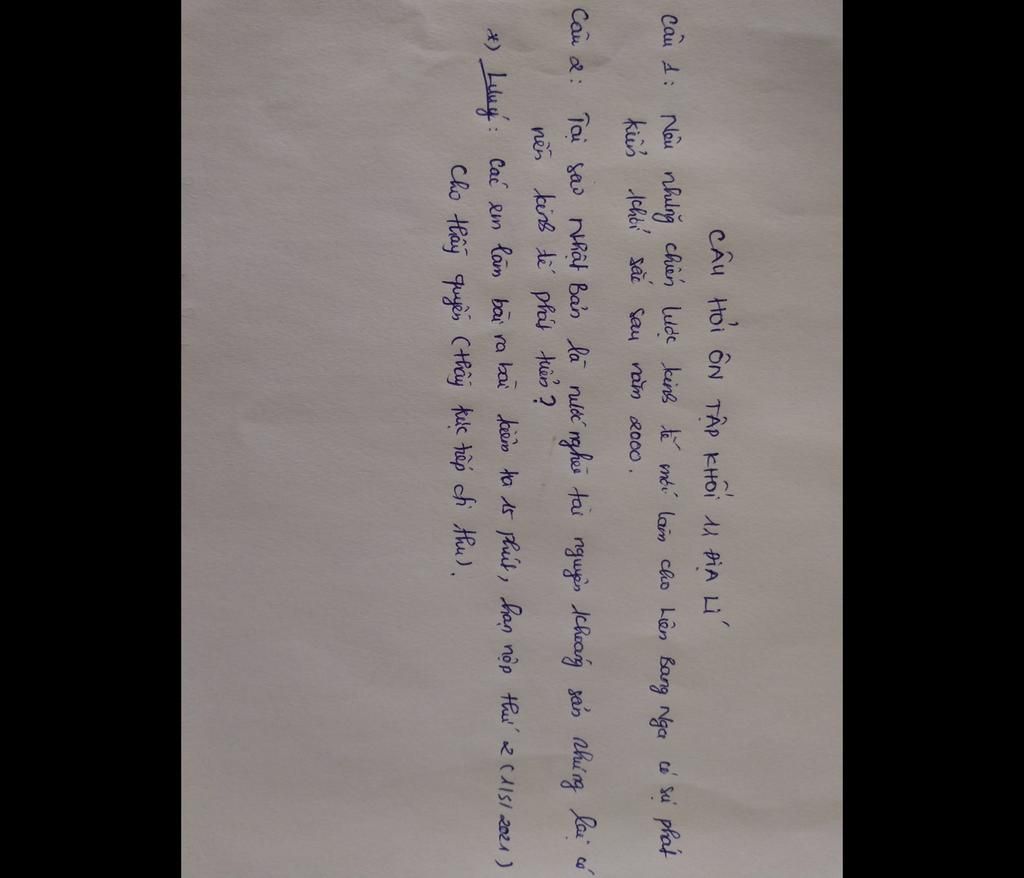 CÂU HỎI ÔN TẬP KHỐI 11 ĐỊA LÍ
Câu 1: Nêu những chiến lược kinh tế mới làm cho Liên Bang Nga có sự phát
triển khởi sắc sau năm 2000.
Câu 2: Tại sao Nhật Bản là nước nghèo tài nguyên khoáng sản nhưng lại có
nền kinh tế phát triển?
*) Lưu ý: Các em làm bài ra bài kiểm tra 15 phút, hạn nộp thứ 2 (1/5/2021)
cho thầy Quyền (thầy trực tiếp đi thu).